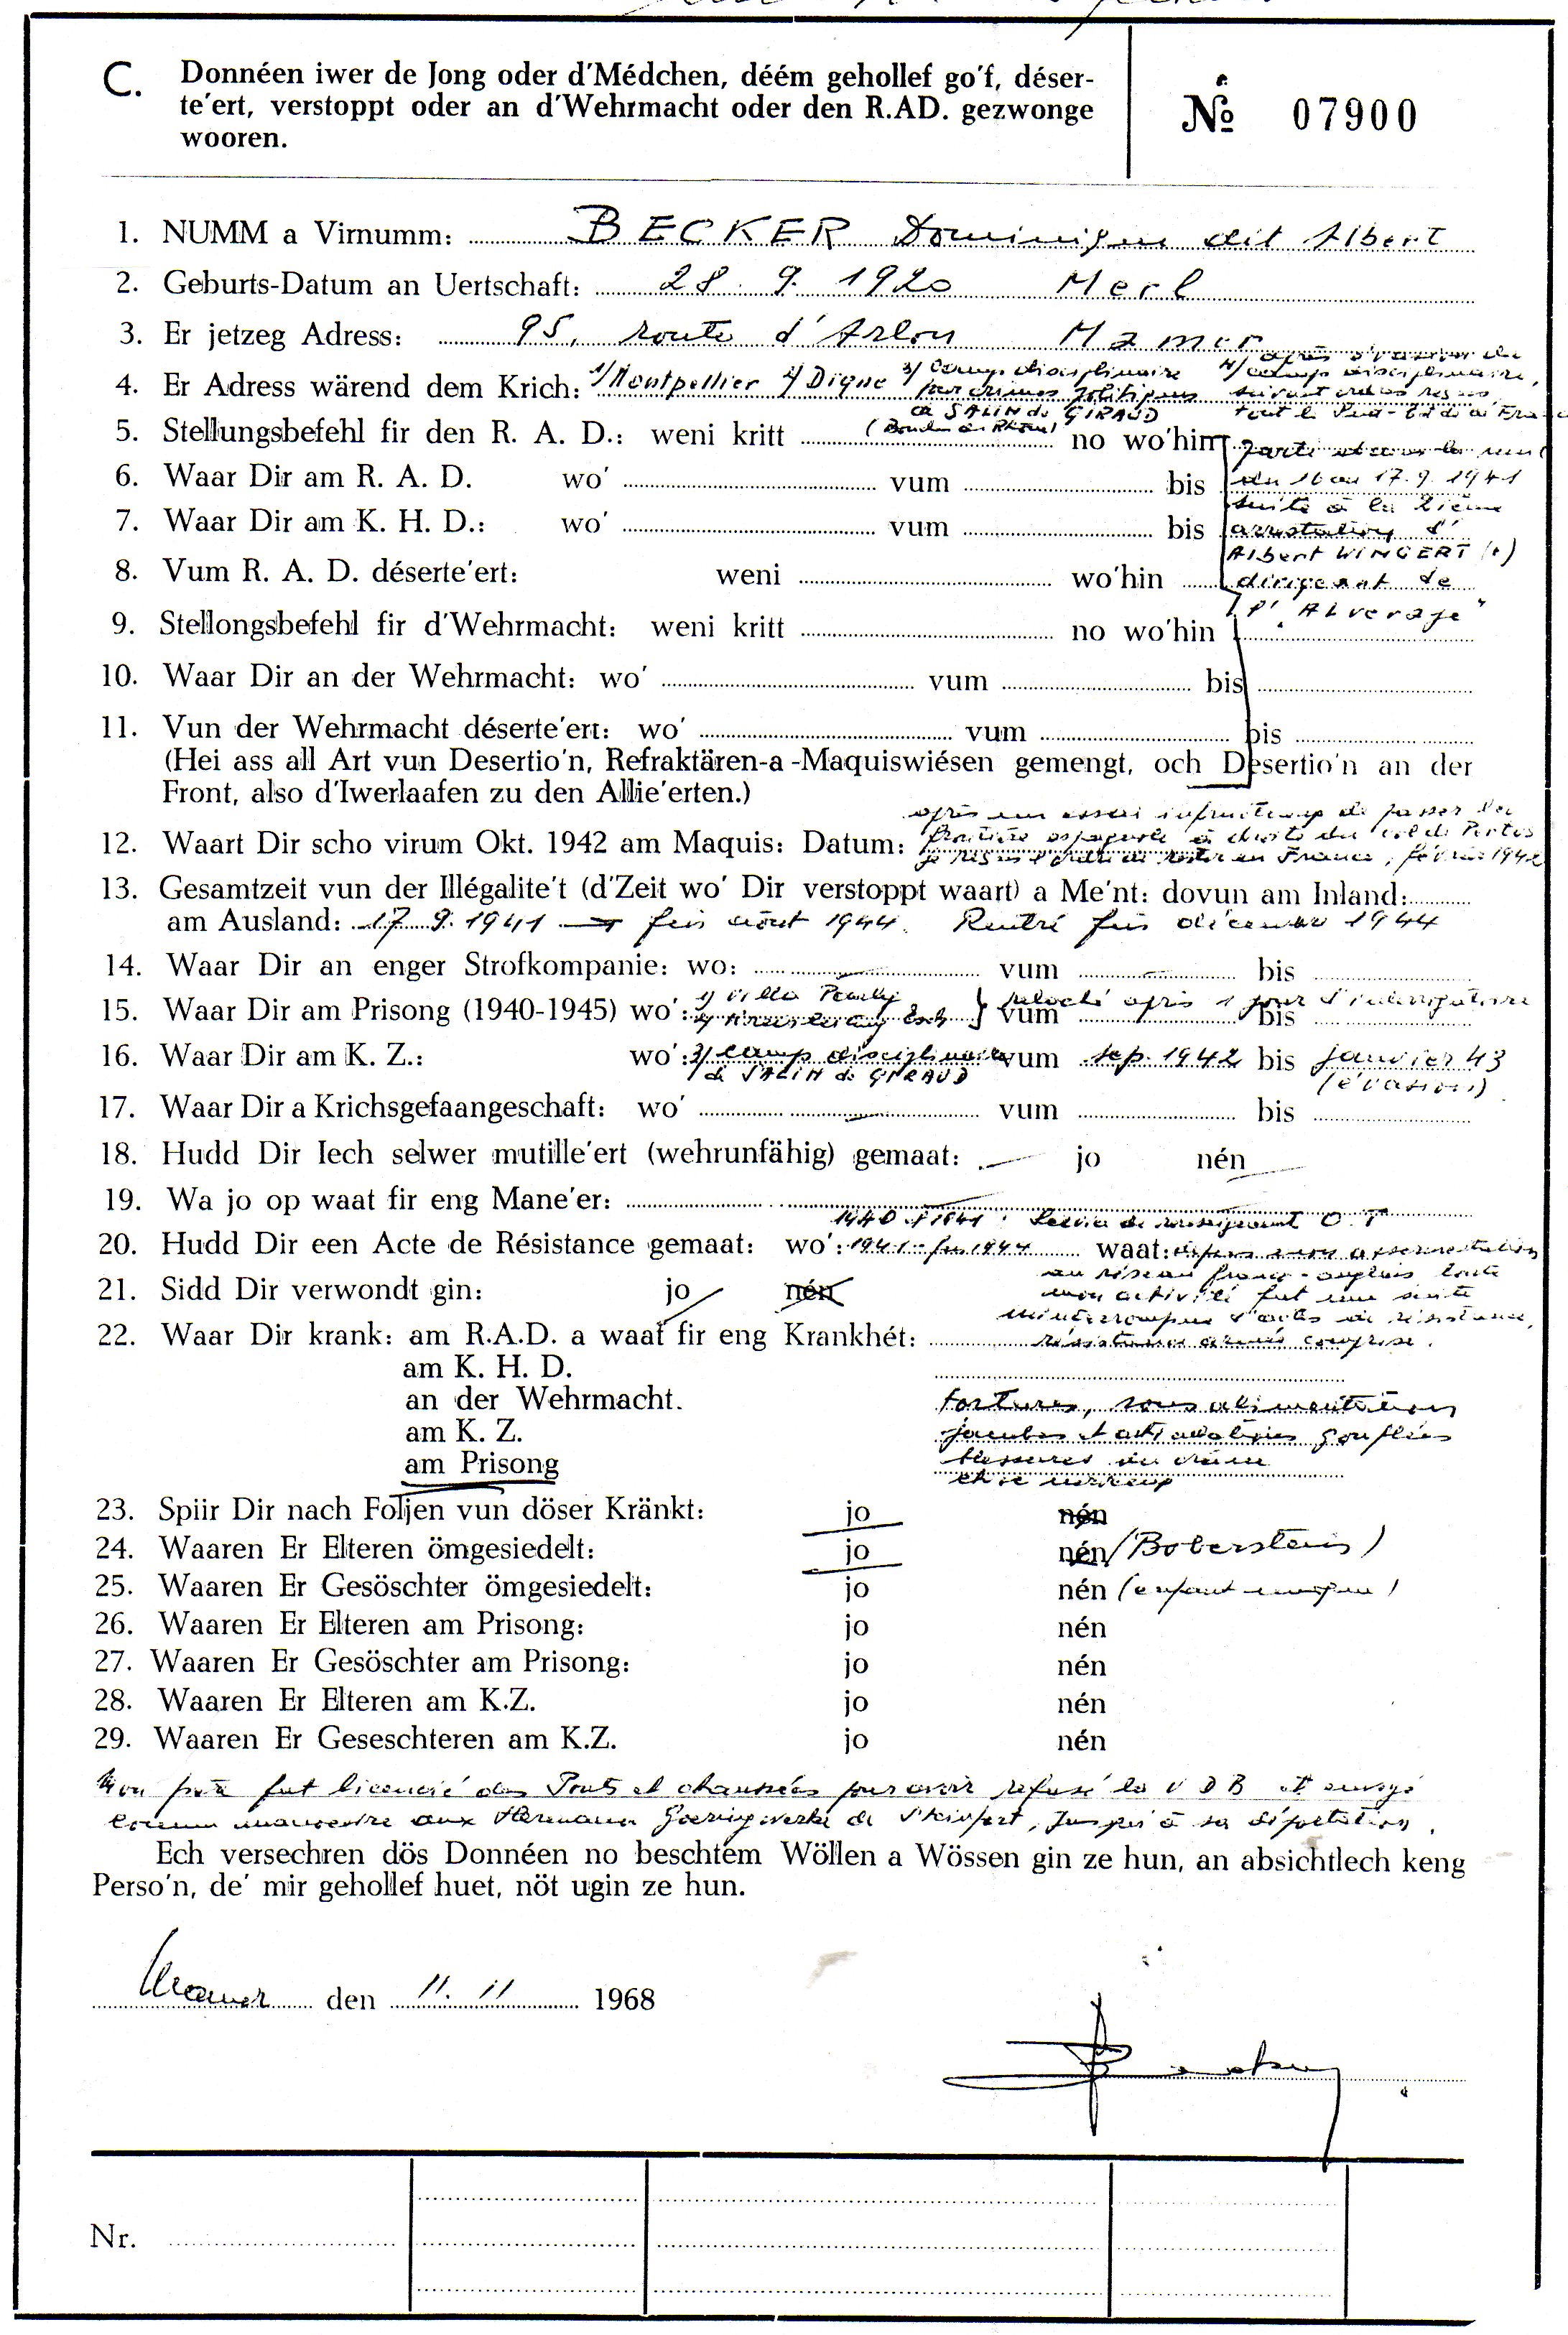 C. Donnéen iwer de Jong oder d'Médchen, déém gehollef go'f, déser-
te'ert, verstoppt oder an d'Wehrmacht oder den R.AD. gezwonge
wooren.
No 07900
1. NUMM a Virnumm: BECKER Dominique dit Albert
2. Geburts-Datum an Uertschaft: 28. 9. 1920 Merl
3. Er jetzeg Adress: 95, route d'Arlon Mamer
4. Er Adress wärend dem Krich: 1/ Montpellier 2/ Digne 3/ Camp disciplinaire
pour crimes politiques
à SALIN de GIRAUD
(Bouches du Rhône)
4/ après évasion du
camp disciplinaire,
suivant ordres reçus
tout le Sud-Est de la France
5. Stellungsbefehl fir den R. A. D.: weni kritt no wo'hin
6. Waar Dir am R. A. D. wo' vum bis
7. Waar Dir am K. H. D.: wo' vum bis
8. Vum R. A. D. déserte'ert: weni wo'hin
9. Stellongsbefehl fir d'Wehrmacht: weni kritt no wo'hin
parti dans la nuit
du 16 au 17. 9. 1941
suite à la
arrestation d'
Albert WINGERT (+)
dirigeant de
l' "ALweraje"
10. Waar Dir an der Wehrmacht: wo' vum bis
11. Vun der Wehrmacht déserte'ert: wo' vum bis
(Hei ass all Art vun Desertio'n, Refraktären-a-Maquiswiésen gemengt, och Desertio'n an der
Front, also d'Iwerlaafen zu den Allie'erten.)
12. Waart Dir scho virum Okt. 1942 am Maquis: Datum:
après un essai infructueux de passer la
frontière espagnole à droite du col de Pertus
je reçus l'ordre de rester en France, février 1942
13. Gesamtzeit vun der Illégalite't (d'Zeit wo' Dir verstoppt waart) a Me'nt: dovun am Inland:
am Ausland: 17. 9. 1941 → fin août 1944. Rentré fin décembre 1944
14. Waar Dir an enger Strofkompanie: wo: vum bis
15. Waar Dir am Prisong (1940-1945) wo': 1/ Villa Pauly
2/ Kreisleitung Esch } relaché après 1 jour d'interrogatoire
vum bis
16. Waar Dir am K. Z.: wo': 3/ camp disciplinaire vum sep. 1942 bis janvier 43
de SALIN de GIRAUD (évasion)
17. Waar Dir a Krichsgefaangeschaft: wo' vum bis
18. Hudd Dir Iech selwer mutille'ert (wehrunfähig) gemaat: jo nén
19. Wa jo op waat fir eng Mane'er:
1940 et 1941 : Service de renseignement O.T
20. Hudd Dir een Acte de Résistance gemaat: wo': 1941 - fin 1944 waat: depuis mon assermentation
au réseau franco-anglais toute
mon activité fut une suite
ininterrompue d'actes de résistance,
résistance armée comprise.
21. Sidd Dir verwondt gin: jo nén
22. Waar Dir krank: am R.A.D. a waat fir eng Krankhét:
am K. H. D.
an der Wehrmacht.
am K. Z.
am Prisong
tortures, sous alimentation
jambes et articulations gonflées
blessures du crâne
23. Spiir Dir nach Foljen vun döser Kränkt: jo nén
24. Waaren Er Elteren ömgesiedelt: jo nén (Boberstein)
25. Waaren Er Gesöschter ömgesiedelt: jo nén (enfant unique)
26. Waaren Er Elteren am Prisong: jo nén
27. Waaren Er Gesöschter am Prisong: jo nén
28. Waaren Er Elteren am K.Z. jo nén
29. Waaren Er Geseschteren am K.Z. jo nén
Mon père fut licencié des Ponts et chaussées pour avoir refusé la V D B et envoyé
comme manoeuvre aux Hermann Goeringwerke de Steinfort, jusqu'à sa déportation.
Ech versechren dös Donnéen no beschtem Wöllen a Wössen gin ze hun, an absichtlech keng
Perso'n, de' mir gehollef huet, nöt ugin ze hun.
Mamer den 11. 11 1968
Nr.